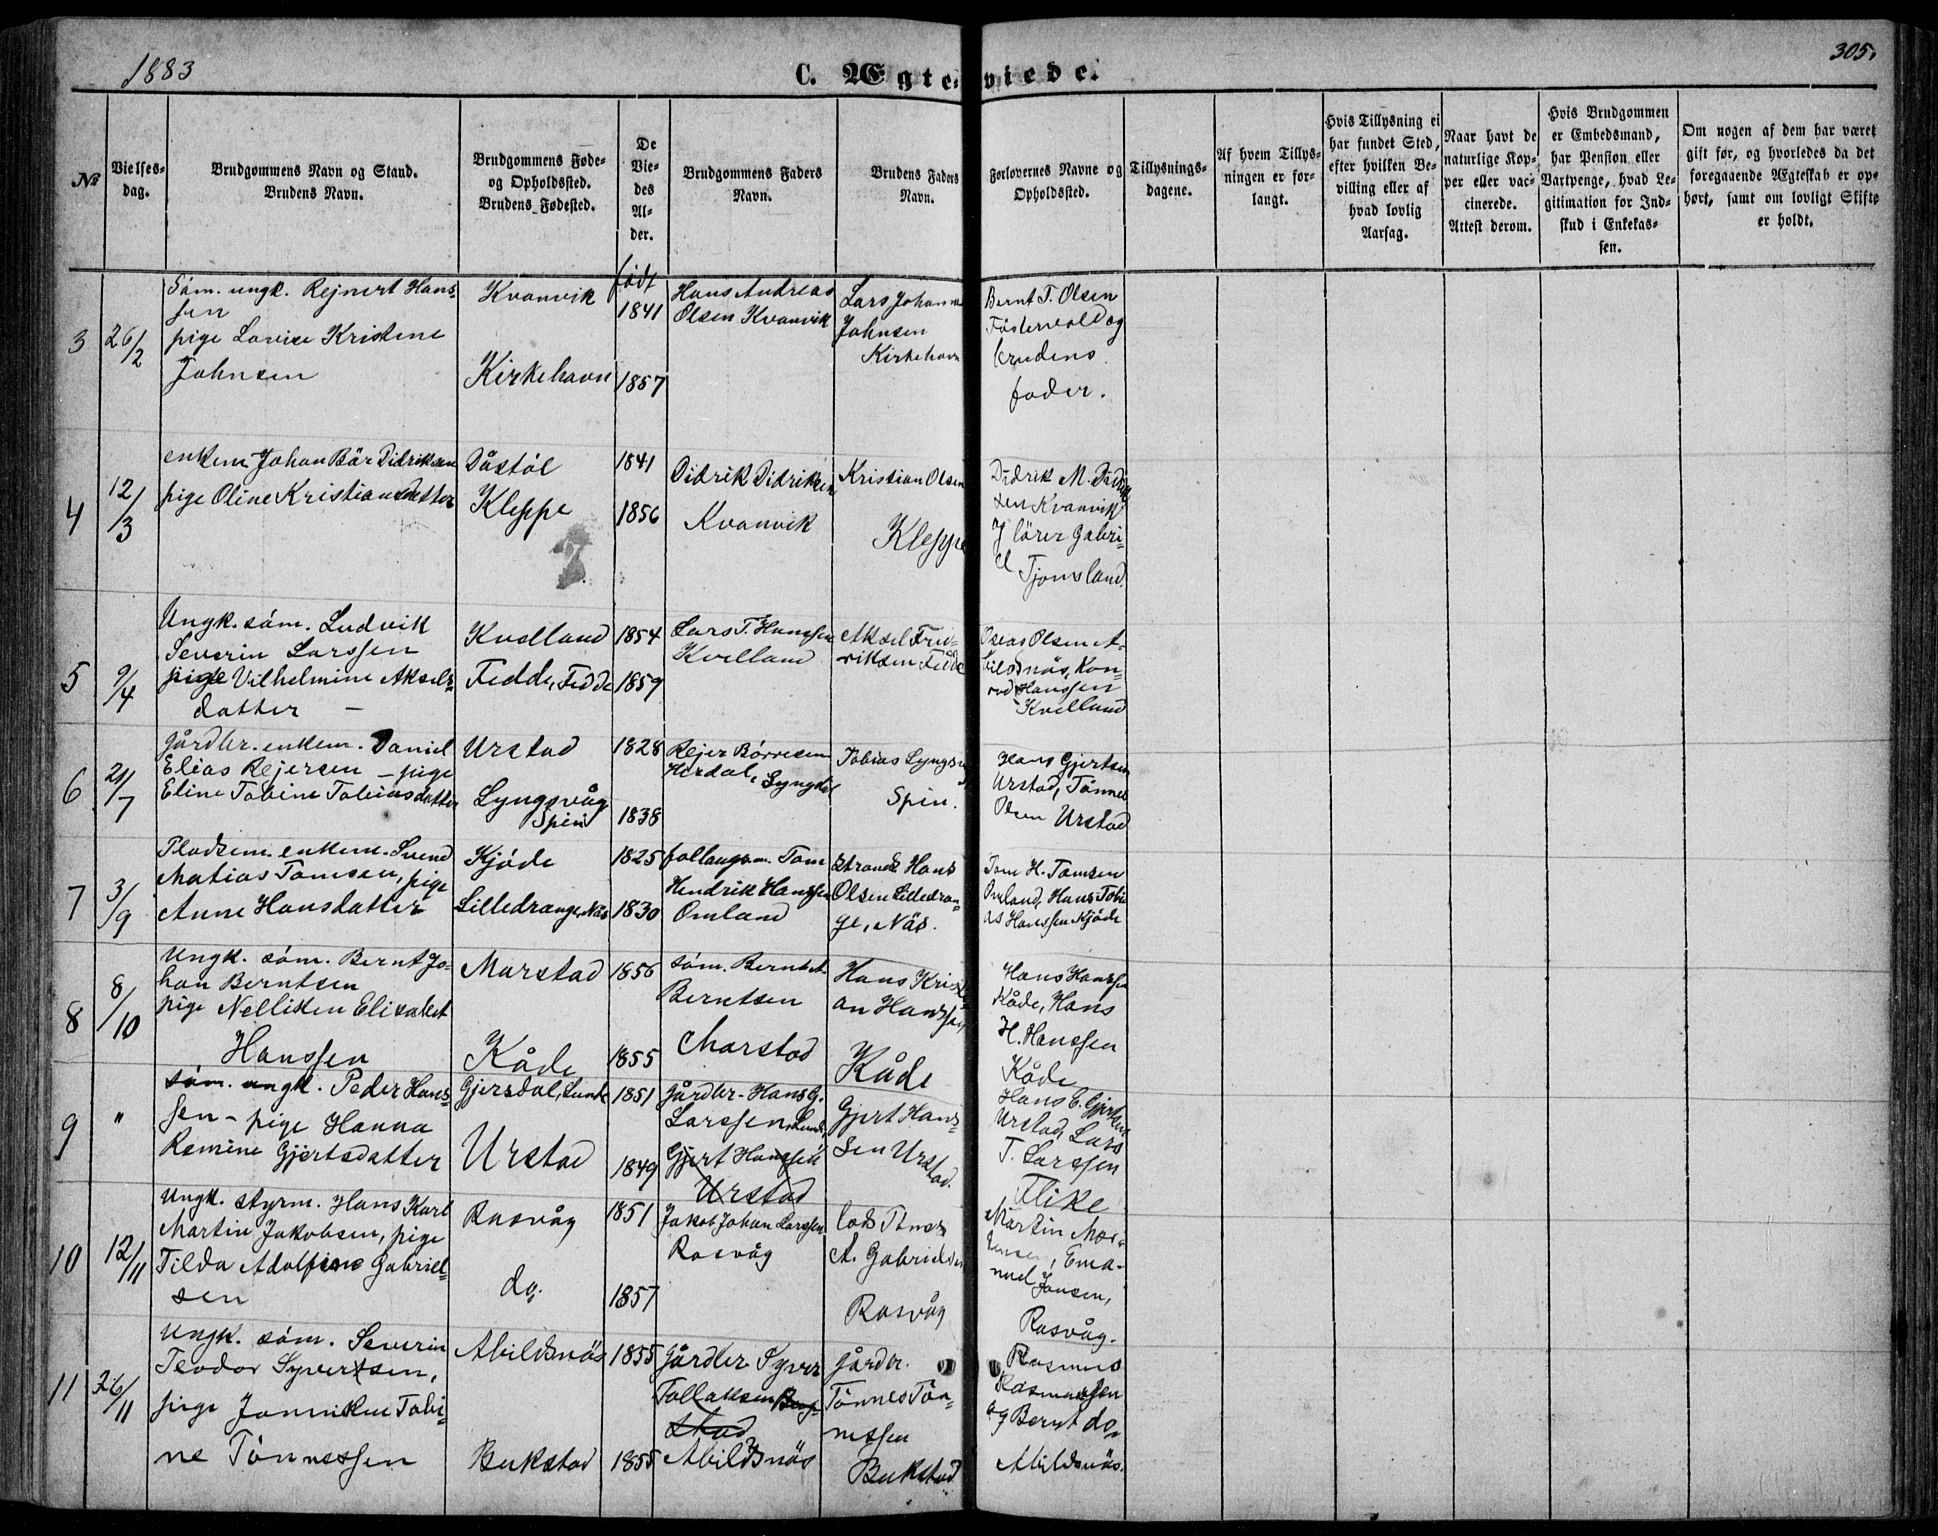 1883
C. Ægteviede.
305.
No
Vielsesdag.
Brudgommens Navn og Stand.
Brudens Navn.
Brudgommens Føde-
og Opholdssted.
Brudens Fødested.
De
Vie-
des
Al-
der.
Brudgommens Faders
Navn.
Brudens Faders
Navn.
Forlovernes Navne og
Opholdssted.
Tillysnings-
dagene.
Af hvem Tillys-
ningen er for-
langt.
Hvis Tillysning ei
har fundet Sted,
efter hvilken Be-
villing eller af
hvad lovlig
Aarsag.
Naar havt de
naturlige Kop-
per eller vac-
cinerede.
Attest derom.
Hvis Brudgommen
er Embedsmand,
har Pension eller
Vartpenge, hvad Le-
gitimation for Ind-
skud i Enkekas-
sen.
Om nogen af dem har været
gift før, og hvorledes da det
foregaaende Ægteskab er op-
hørt, samt om lovligt Skifte
er holdt.
3
26/2
Søm. ungk. Rejnert Hans-
sen
pige Lovise Kristine
Johnsen
Kvanvik
Kirkehavn
født
1841
1857
Hans Andreas
Olsen Kvanvik
Lars Johan
Johnsen
Kirkehavn
Bernt T. Olsen
Tåstervold og
brudens
fader.
4
12/3
enkem. Johan Bär Didriksen
pige Oline Kristiansdatter
Dåstøl
Kleppe
1841
1856
Didrik Didriksen
Kvanvik
Kristian Olsen
Kleppe
Didrik M. Didrik
sen Kvanvik
og lärer Gabri-
el Tjomsland.
5
9/4
Ungk. søm. Ludvik
Severin Larssen
pige Vilhelmine Aksels-
datter –
Kvelland
Fedde, Fedde
1854
1859
Lars T. Hanssen
Kvelland
Aksel Fred-
riksen Fedde
Oseas Olsen A-
bildsnäs, Kon-
rad Hanssen
Kvelland
6
21/7
Gårdbr. enkem. Daniel
Elias Rejersen – pige
Eline Tobine Tobiasdatter
Urstad
Lyngsvåg
Spin
1828
1838
Rejer Børresen
Herdal, Lyngdal
Tobias Lyngsvåg
Spin.
Hans Gjertsen
Urstad, Tønnes
Olsen Urstad
7
3/9
Pladsem. enkem. Svend
Matias Tomsen, pige
Anne Hansdatter
Kjøde
Lilledrange, Näs
1825
1830
follaugsm. Tom
Hendrik Hanssen
Omland
strands. Hans
Olsen Lilledran-
ge, Näs.
Tom H. Tomsen
Omland, Hans Tobi-
as Hanssen Kjøde
8
8/10
Ungk. søm. Bernt Jo-
han Berntsen
pige Nelliken Elisabet
Hanssen
Marstad
Kåde
1856
1855
søm. Bernt A.
Berntsen
Marstad
Hans Kristi
an Hanssen
Kåde
Hans Hanssen
Kåde, Hans
H. Hanssen
Kåde
9
"
søm. ungk. Peder Hans-
sen – pige Hanna
Ramine Gjertsdatter
Gjersdal, Lunde
Urstad
1851
1849
Gårdbr. Hans G.
Larssen, Lunde
Gjert Hanssen
Urstad
Gjert Hans-
sen Urstad.
Hans E. Gjertsen
Urstad, Lars
T. Larssen
Flike
10
12/11
Ungk. styrm. Hans Karl
Martin Jakobsen, pige
Tilda Adolfine Gabriel-
sen
Rasvåg
do.
1851
1857
Jakob Johan Larssen
Rasvåg
lods Tønnes
A. Gabrielsen
Rasvåg
Martin Mor-
tensen, Ema-
nuel Jansen,
Rasvåg.
11
26/11
Ungk. søm. Severin
Teodor Syvertsen,
pige Janniken Tobi-
ne Tønnessen
Abildsnäs
Bukstad
1855
1855
Gårdbr. Syver
Tollaksen
Abildsnäs
gårdbr.
Tønnes Tøn-
nessen
Bukstad
Rasmus
Rasmussen
og Bernt do.
Abildsnäs.